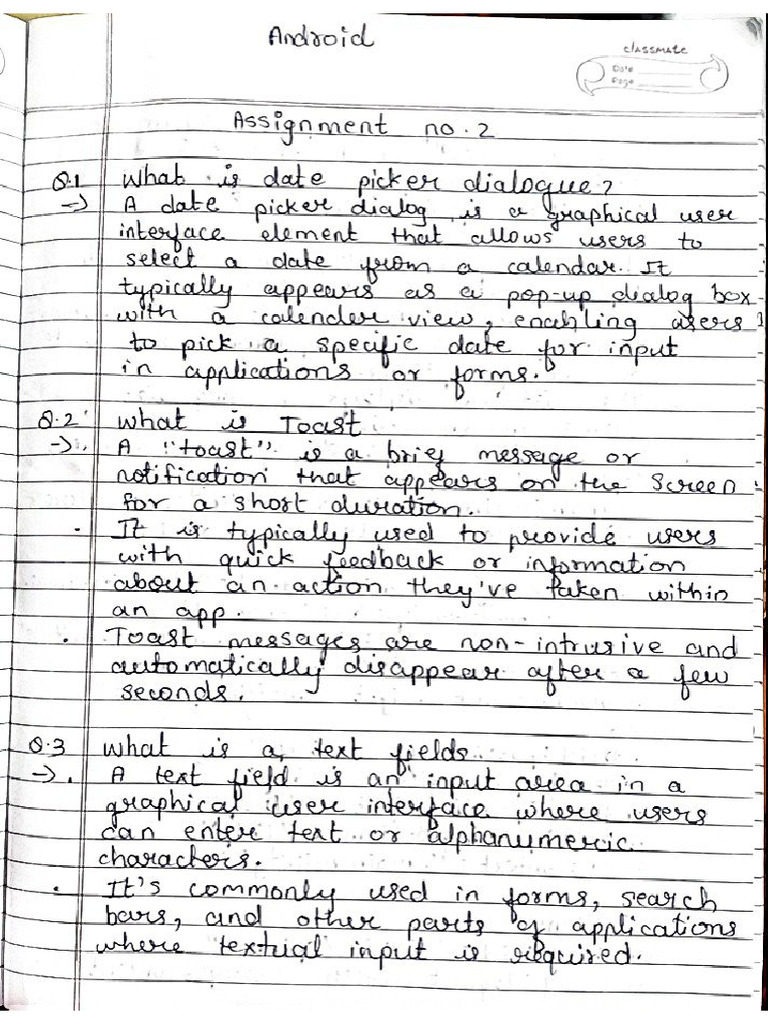 Android
classmate
Date
Page
Assignment no. 2
Q.1 What is date picker dialogue?
→ A date picker dialog is a graphical user
interface element that allows users to
select a date from a calendar. It
typically appears as a pop-up dialog box
with a calender view, enabling users
to pick a specific date for input
in applications or forms.
Q.2 What is Toast
→ A "toast" is a brief message or
notification that appears on the screen
for a short duration.
• It is typically used to provide users
with quick feedback or information
about an action they've taken within
an app.
• Toast messages are non-intrusive and
automatically disappear after a few
seconds.
Q.3 What is a text fields
→ • A text field is an input area in a
graphical user interface where users
can enter text or alphanumeric
characters.
• It's commonly used in forms, search
bars, and other parts of applications
where textual input is required.